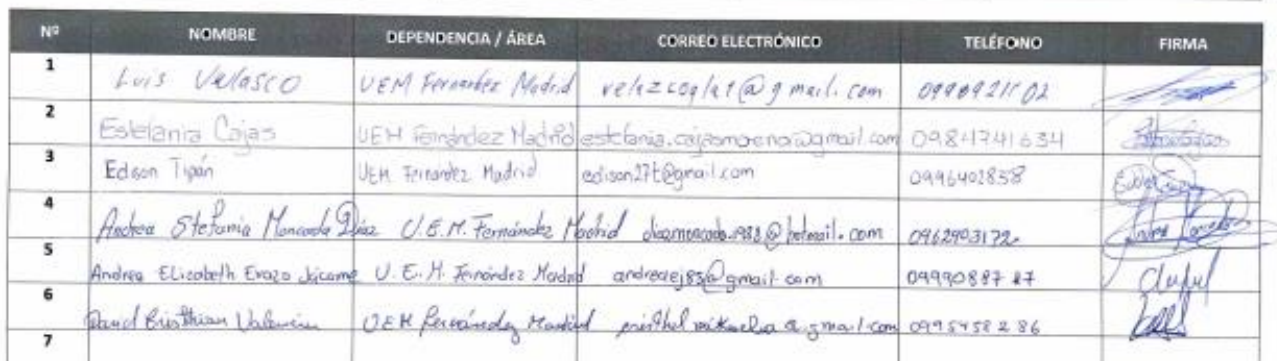 Nº NOMBRE DEPENDENCIA / ÁREA CORREO ELECTRÓNICO TELÉFONO FIRMA
1 Luis Velasco UEM Fernandez Madrid 0990921102
2 Estefania Cajas UEM Fernández Madrid estefania.cajasmoreno@gmail.com 0984741634
3 Edison Tipán UEM Fernández Madrid edison27t@gmail.com 0996402858
4 Andrea Stefania Moncada Díaz U.E.M. Fernández Madrid diazmoncada.1988@hotmail.com 0962903172
5 Andrea Elizabeth Erazo Jácome U.E.M. Fernández Madrid @gmail.com
6 David Valencia UEM Fernández Madrid 0995458286
7